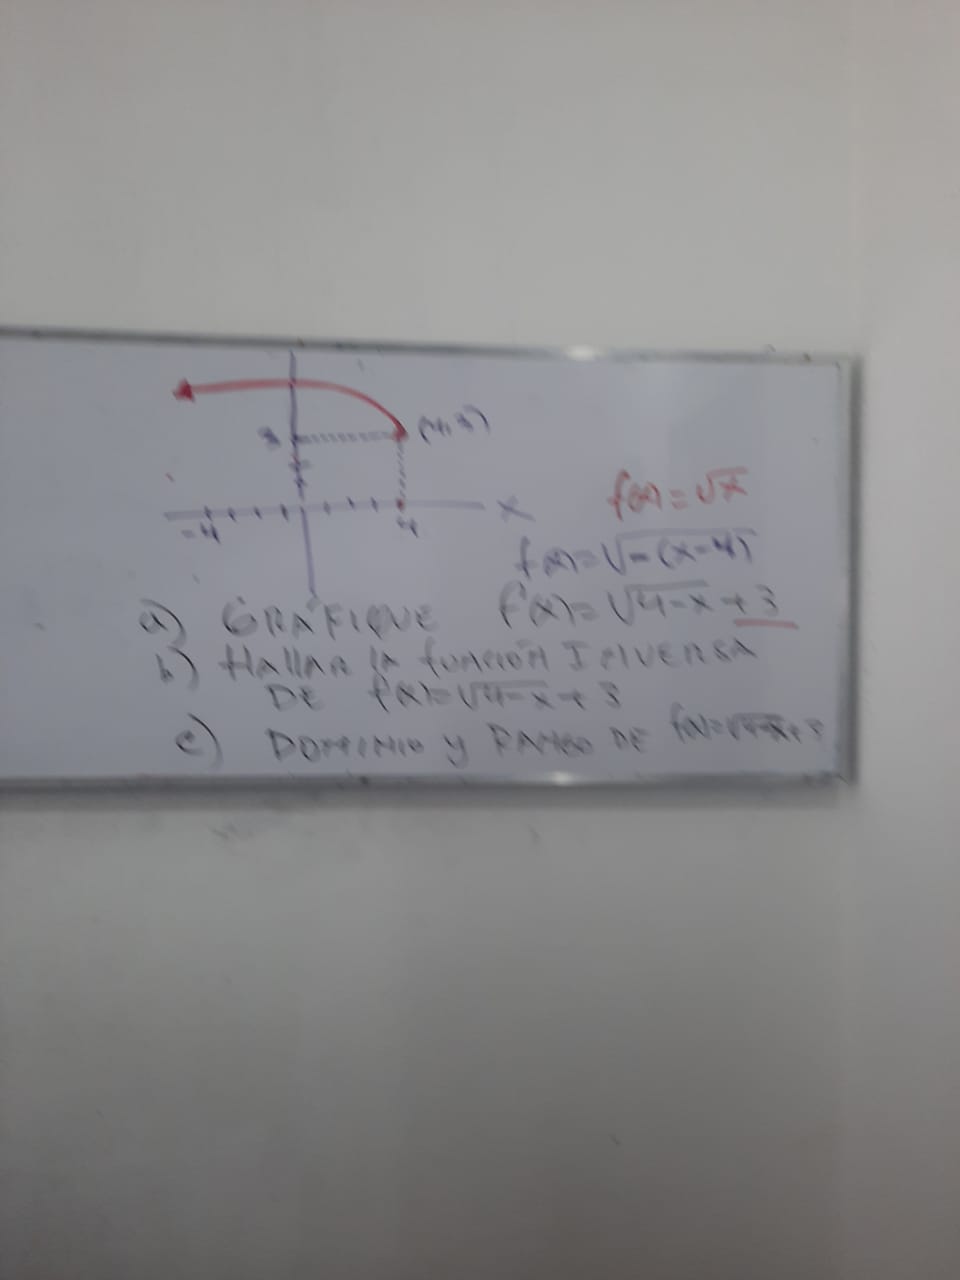 3 (4,3)
-4 4 x
f(x)=√x
f(x)=√-(x-4)
a) GRAFIQUE f(x)=√4-x+3
b) HALLAR LA FUNCIÓN INVERSA
DE f(x)=√4-x+3
c) DOMINIO y RANGO DE f(x)=√4-x+3